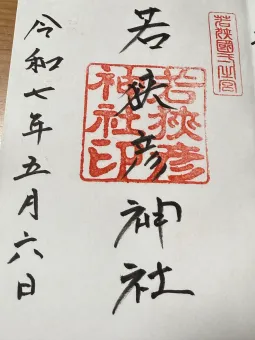 若狹國一之宮
若狭彦神社
若狹彦
神社印
令和七年五月六日